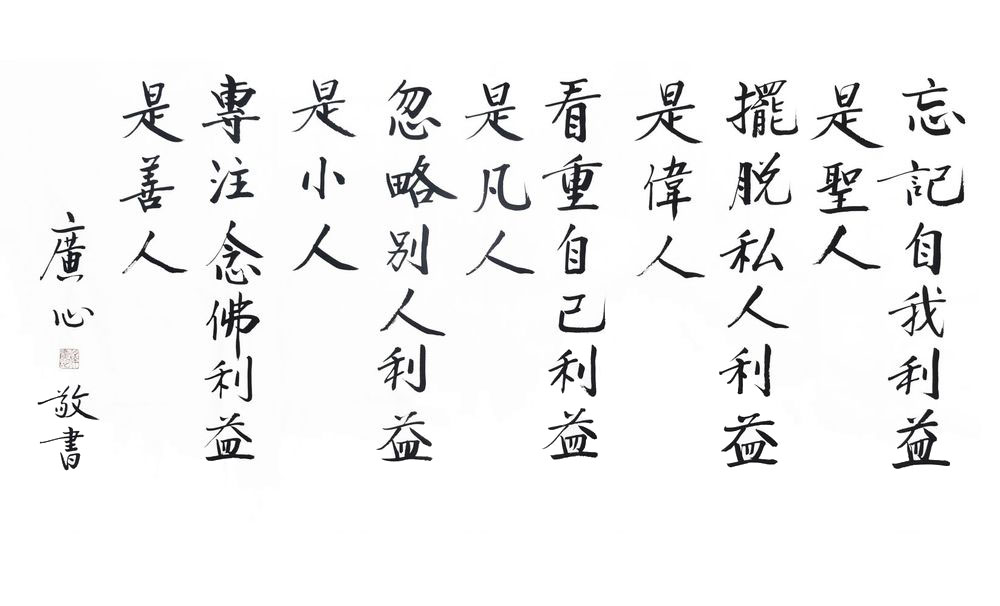 忘記自我利益
是聖人
擺脫私人利益
是偉人
看重自己利益
是凡人
忽略別人利益
是小人
專注念佛利益
是善人
廣心
敬書